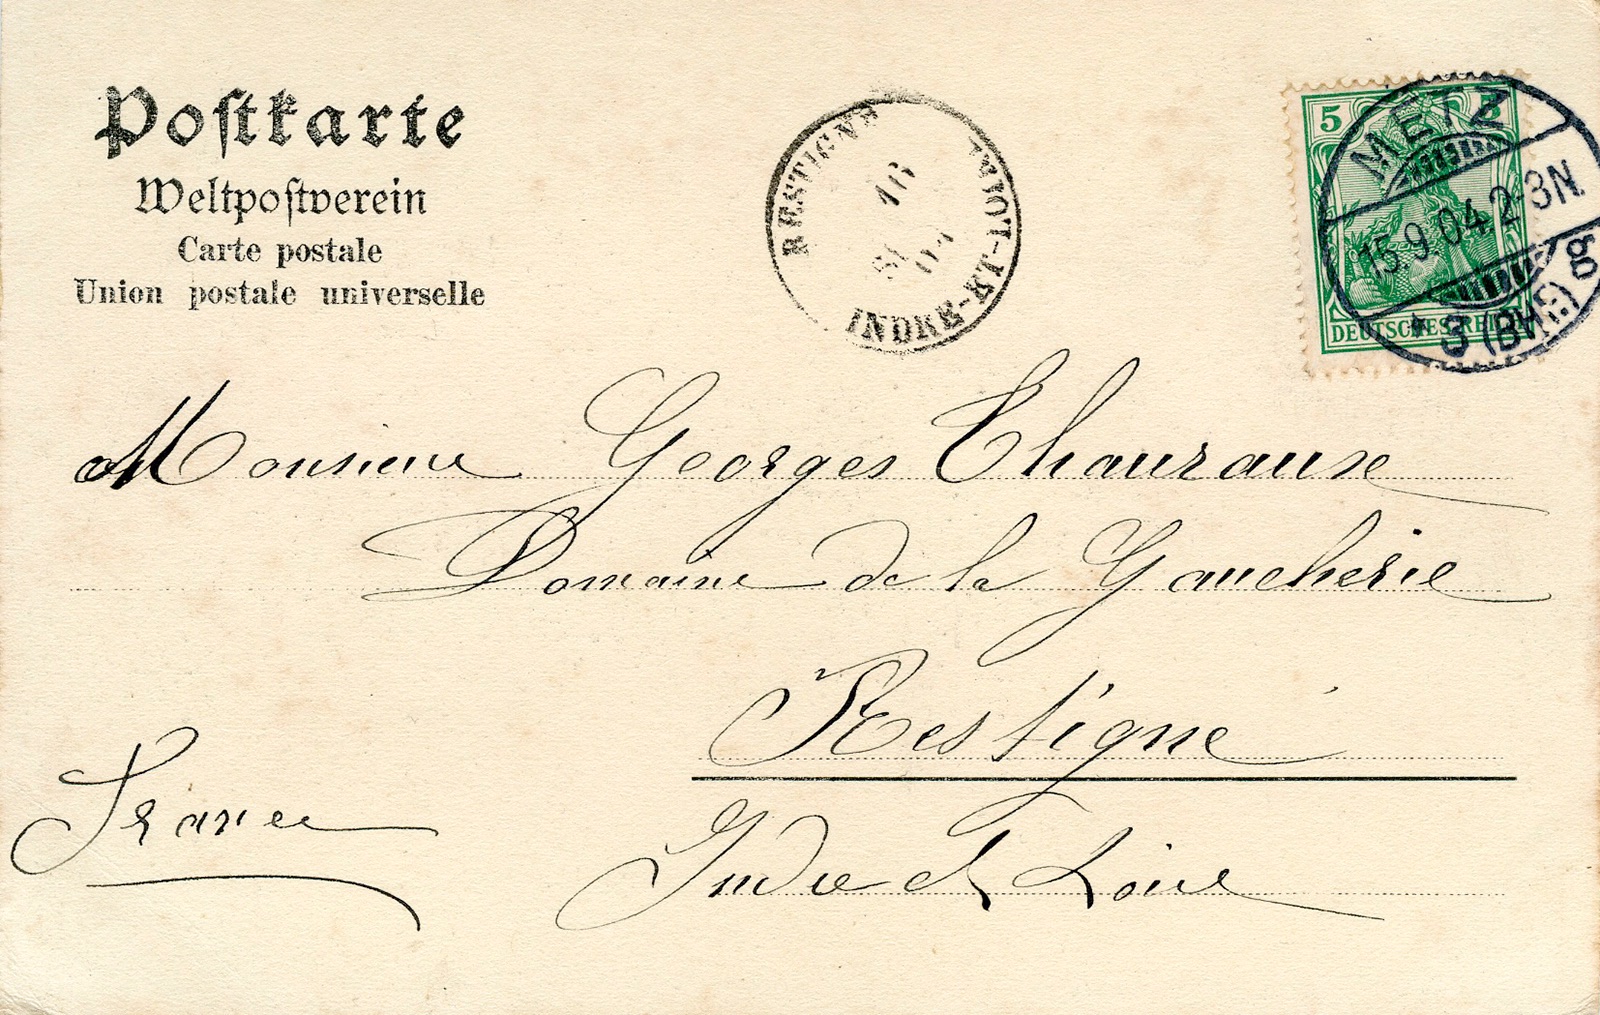 Poſtkarte
Weltpoſtverein
Carte postale
Union postale universelle
RESTIGNE
16
INDRE-ET-LOIRE
5 5
DEUTSCHES REICH
METZ
15.9.04.2-3N.
* 3 (BHF.) g
Monsieur Georges
Domaine de la Gaucherie
Restigné
France
Indre et Loire